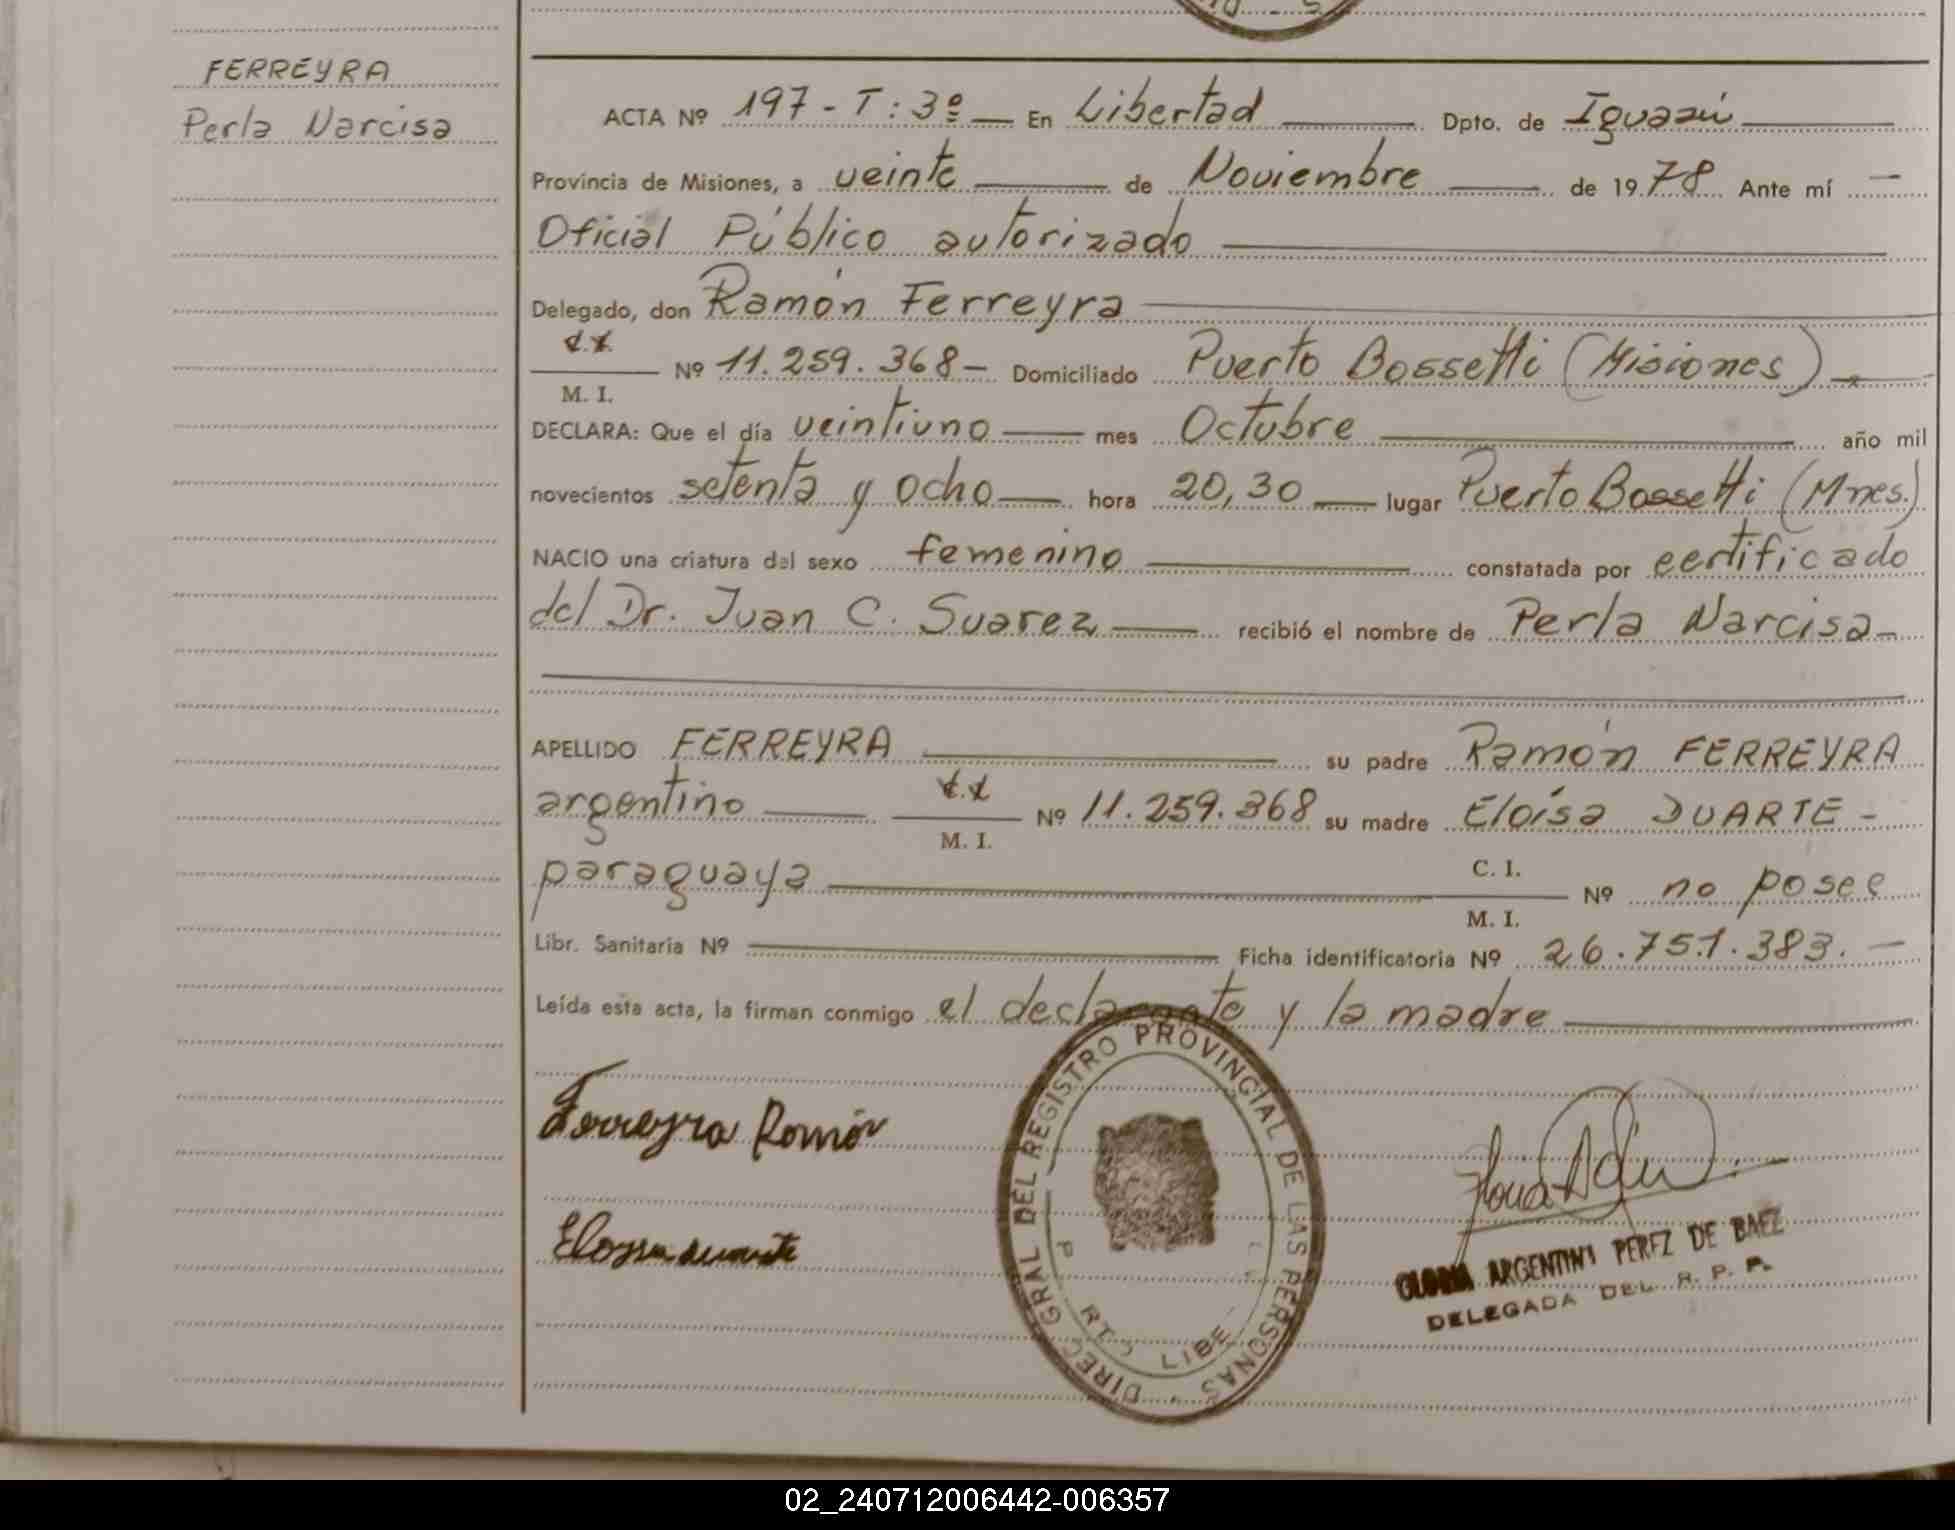 FERREYRA
Perla Narcisa
ACTA Nº 197 - T: 3º — En Libertad Dpto. de Iguazú
Provincia de Misiones, a veinte de Noviembre de 1978 Ante mí —
Oficial Público autorizado
Delegado, don Ramón Ferreyra
C.I.
M. I. Nº 11.259.368 - Domiciliado Puerto Bossetti (Misiones)
DECLARA: Que el día veintiuno mes Octubre año mil
novecientos setenta y ocho hora 20,30 lugar Puerto Bossetti (Mnes.)
NACIO una criatura del sexo femenino constatada por certificado
del Dr. Juan C. Suarez recibió el nombre de Perla Narcisa
APELLIDO FERREYRA su padre Ramón FERREYRA
argentino C.I. M. I. Nº 11.259.368 su madre Eloísa DUARTE -
paraguaya C. I. M. I. Nº no posee
Libr. Sanitaria Nº Ficha identificatoria Nº 26.751.383. —
Leída esta acta, la firman conmigo el declarante y la madre
Ferreyra Ramón
Eloysa duarte
DIREC. GRAL DEL REGISTRO PROVINCIAL DE LAS PERSONAS
LIBE
GLORIA ARGENTINA PEREZ DE BAEZ
DELEGADA DEL R. P. P.
02_240712006442-006357